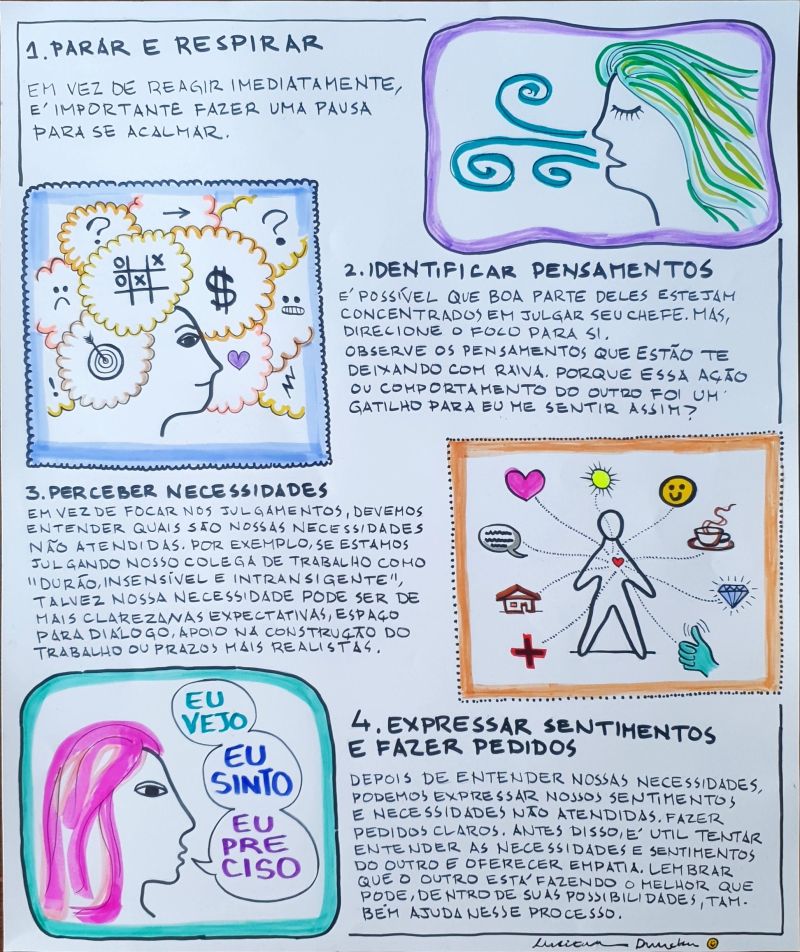 1. PARAR E RESPIRAR
EM VEZ DE REAGIR IMEDIATAMENTE,
E' IMPORTANTE FAZER UMA PAUSA
PARA SE ACALMAR.
? → ?
O X
O X
$
!
2. IDENTIFICAR PENSAMENTOS
E' POSSÍVEL QUE BOA PARTE DELES ESTEJAM
CONCENTRADOS EM JULGAR SEU CHEFE. MAS,
DIRECIONE O FOCO PARA SI.
OBSERVE OS PENSAMENTOS QUE ESTÃO TE
DEIXANDO COM RAIVA. PORQUE ESSA AÇÃO
OU COMPORTAMENTO DO OUTRO FOI UM
GATILHO PARA EU ME SENTIR ASSIM?
3. PERCEBER NECESSIDADES
EM VEZ DE FOCAR NOS JULGAMENTOS, DEVEMOS
ENTENDER QUAIS SÃO NOSSAS NECESSIDADES
NÃO ATENDIDAS. POR EXEMPLO, SE ESTAMOS
JULGANDO NOSSO COLEGA DE TRABALHO COMO
"DURÃO, INSENSÍVEL E INTRANSIGENTE",
TALVEZ NOSSA NECESSIDADE PODE SER DE
MAIS CLAREZA NAS EXPECTATIVAS, ESPAÇO
PARA DIÁLOGO, APOIO NA CONSTRUÇÃO DO
TRABALHO OU PRAZOS MAIS REALISTAS.
EU
VEJO
EU
SINTO
EU
PRE
CISO
4. EXPRESSAR SENTIMENTOS
E FAZER PEDIDOS
DEPOIS DE ENTENDER NOSSAS NECESSIDADES,
PODEMOS EXPRESSAR NOSSOS SENTIMENTOS
E NECESSIDADES NÃO ATENDIDAS. FAZER
PEDIDOS CLAROS. ANTES DISSO, E' UTIL TENTAR
ENTENDER AS NECESSIDADES E SENTIMENTOS
DO OUTRO E OFERECER EMPATIA. LEMBRAR
QUE O OUTRO ESTÁ FAZENDO O MELHOR QUE
PODE, DENTRO DE SUAS POSSIBILIDADES, TAM-
BÉM AJUDA NESSE PROCESSO.